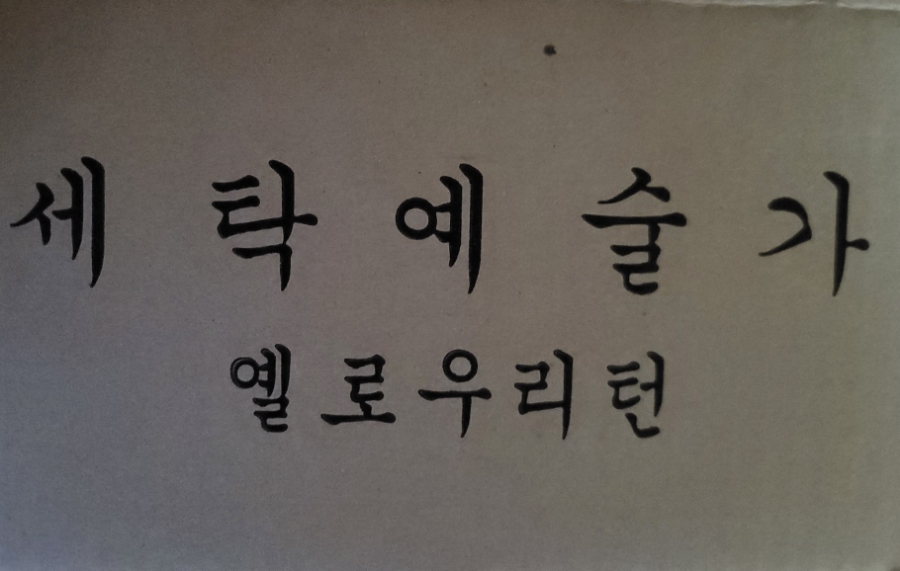 세탁예술가
옐로우리턴